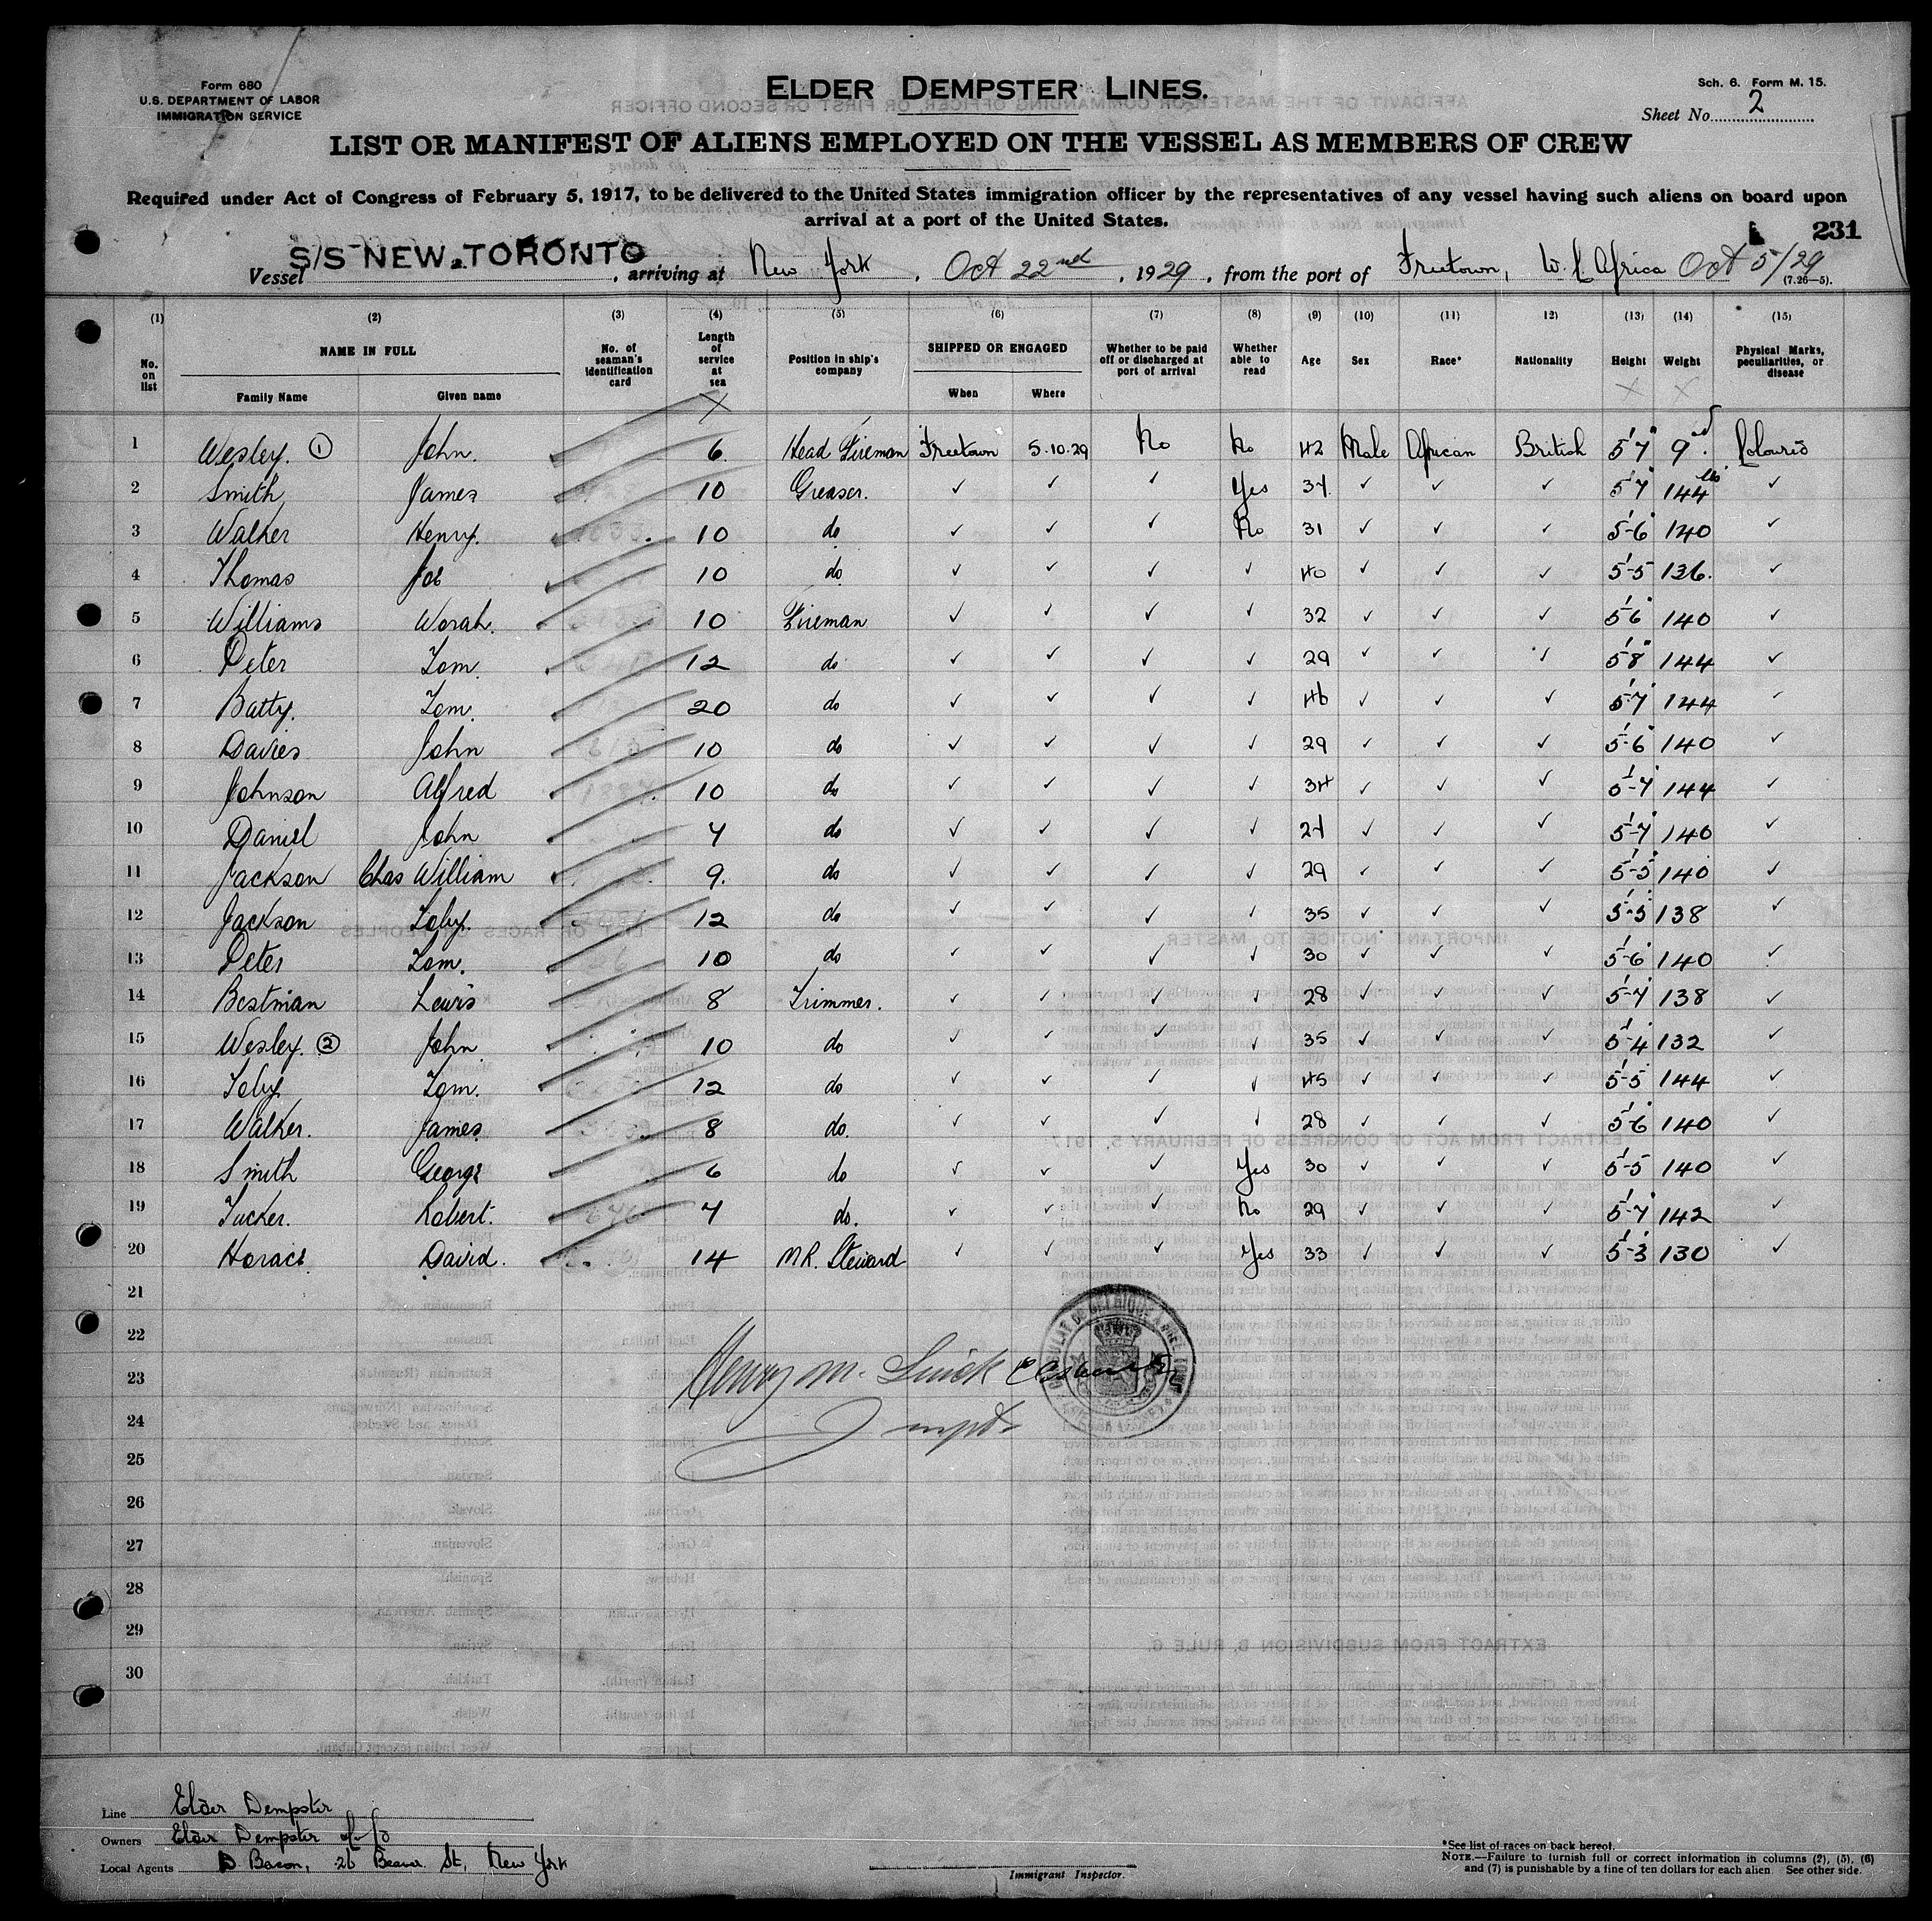 Form 680
U.S. DEPARTMENT OF LABOR
IMMIGRATION SERVICE
ELDER DEMPSTER LINES.
Sch. 6. Form M. 15.
Sheet No. 2
LIST OR MANIFEST OF ALIENS EMPLOYED ON THE VESSEL AS MEMBERS OF CREW
Required under Act of Congress of February 5, 1917, to be delivered to the United States immigration officer by the representatives of any vessel having such aliens on board upon
arrival at a port of the United States.
231
Vessel S/S NEW TORONTO, arriving at New York, Oct 22nd, 1929, from the port of Freetown, W. C. Africa Oct 5/29
(7.26—5).
(1) (2) (3) (4) (5) (6) (7) (8) (9) (10) (11) 12) (13) (14) (15)
No. on list NAME IN FULL Family Name Given name No. of seaman's identification card Length of service at sea Position in ship's company SHIPPED OR ENGAGED When Where Whether to be paid off or discharged at port of arrival Whether able to read Age Sex Race* Nationality Height Weight Physical Marks, peculiarities, or disease
1 Wesley. ① John. 6 Head Fireman Freetown 5.10.29 No No 42 Male African British 5'7" 9 Coloured
2 Smith James 10 Greaser. ✓ ✓ ✓ Yes 37 ✓ ✓ ✓ 5'7" 144 lbs ✓
3 Walker Henry. 10 do ✓ ✓ ✓ No 31 ✓ ✓ ✓ 5'-6" 140 ✓
4 Thomas Joe 10 do ✓ ✓ ✓ ✓ 40 ✓ ✓ ✓ 5'-5 136. ✓
5 Williams Worah. 10 Fireman ✓ ✓ ✓ ✓ 32 ✓ ✓ ✓ 5'6" 140 ✓
6 Peter Tom. 12 do ✓ ✓ ✓ ✓ 29 ✓ ✓ ✓ 5'8" 144 ✓
7 Batty. Tom. 20 do ✓ ✓ ✓ ✓ 46 ✓ ✓ ✓ 5'-7" 144 ✓
8 Davies John 10 do ✓ ✓ ✓ ✓ 29 ✓ ✓ ✓ 5'-6" 140 ✓
9 Johnson Alfred 10 do ✓ ✓ ✓ ✓ 34 ✓ ✓ ✓ 5'-7" 144 ✓
10 Daniel John 7 do ✓ ✓ ✓ ✓ ✓ ✓ ✓ 5'-7" 140 ✓
11 Jackson Chas William 9. do ✓ ✓ ✓ ✓ 29 ✓ ✓ ✓ 5'-5" 140 ✓
12 Jackson Toby. 12 do ✓ ✓ ✓ ✓ 35 ✓ ✓ ✓ 5'-5" 138 ✓
13 Peter Tom. 10 do ✓ ✓ ✓ ✓ 30 ✓ ✓ ✓ 5'-6" 140 ✓
14 Bestman Lewis 8 Trimmer. ✓ ✓ ✓ ✓ 28 ✓ ✓ ✓ 5'-7" 138 ✓
15 Wesley. ② John 10 do ✓ ✓ ✓ ✓ 35 ✓ ✓ ✓ 5'-4" 132 ✓
16 Toby Tom. 12 do ✓ ✓ ✓ ✓ 45 ✓ ✓ ✓ 5'-5" 144 ✓
17 Walker. James 8 do. ✓ ✓ ✓ ✓ 28 ✓ ✓ ✓ 5'-6" 140 ✓
18 Smith George 6 do ✓ ✓ ✓ Yes 30 ✓ ✓ ✓ 5'-5" 140 ✓
19 Tucker. Robert. 7 do. ✓ ✓ ✓ No 29 ✓ ✓ ✓ 5'-7" 142 ✓
20 Horace David. 14 M.R. Steward ✓ ✓ ✓ Yes 33 ✓ ✓ ✓ 5'-3" 130 ✓
21
22
23
24
25
26
27
28
29
30
Henry M.
Line Elder Dempster
Owners Elder Dempster & Co
Local Agents D. Bacon, 26 Beaver St, New York
Immigrant Inspector.
*See list of races on back hereof.
NOTE.—Failure to furnish full or correct information in columns (2), (5), (6)
and (7) is punishable by a fine of ten dollars for each alien. See other side.